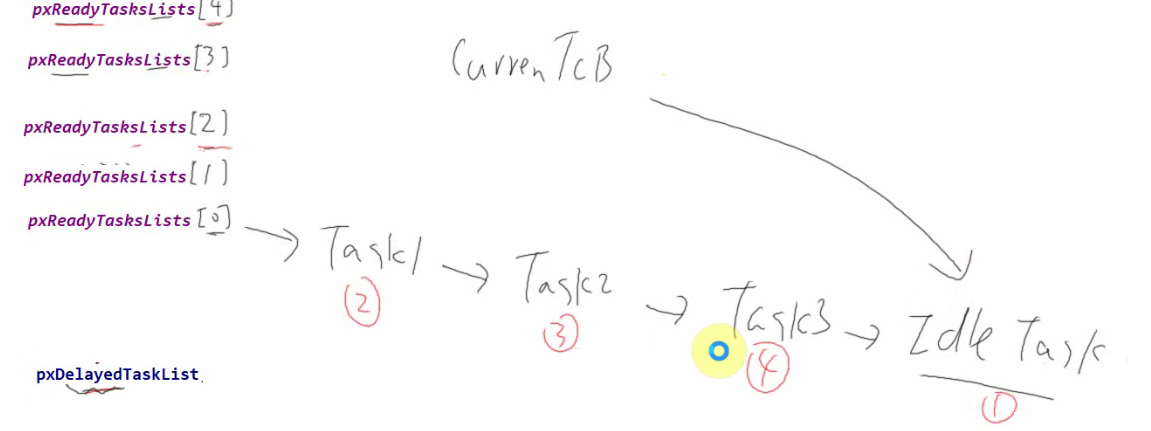 pxReadyTasksLists[4]
pxReadyTasksLists[3]
CurrenTCB
pxReadyTasksLists[2]
pxReadyTasksLists[1]
pxReadyTasksLists[0]
Task1 Task2 Task3 Idle Task
② ③ ④ ①
pxDelayedTaskList